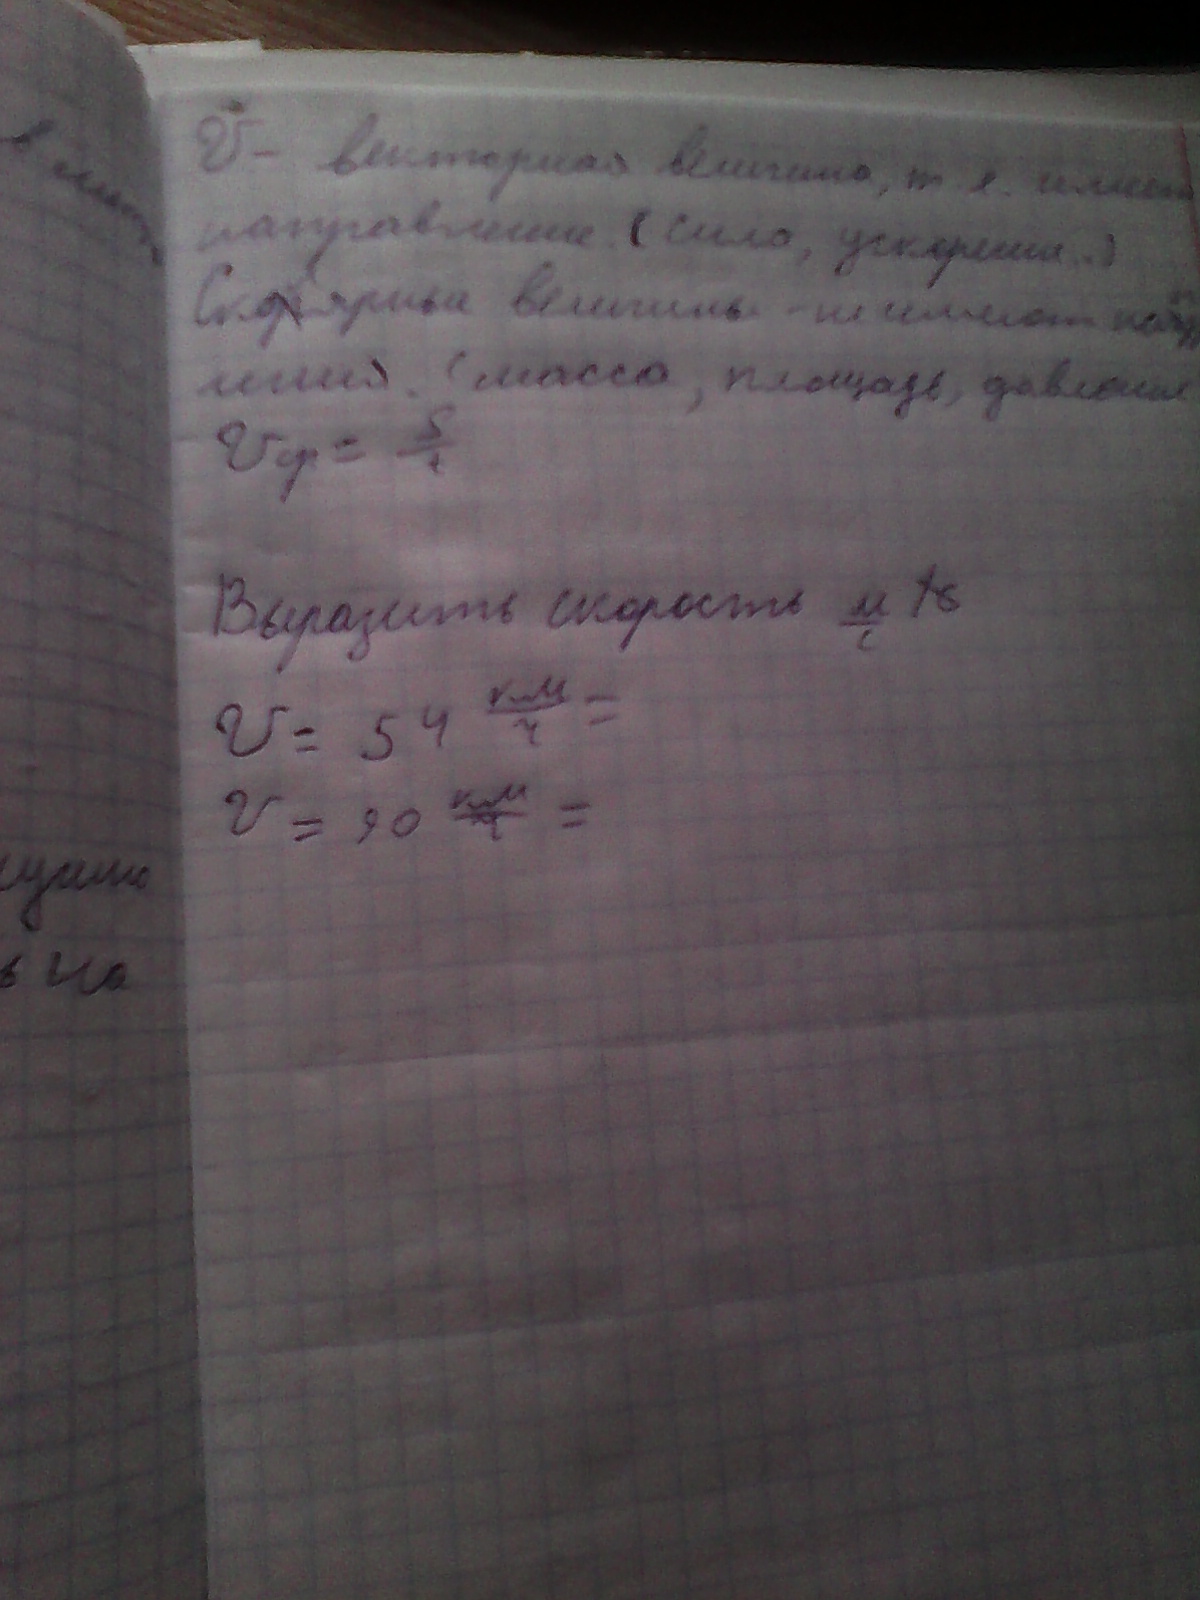 в
V̄ - векторная величина, т.е. имеет
направление (сила, ускорение..)
Скалярные величины - не имеют напр
ления. (масса, площадь, давление
Vср = S/t
Выразить скорость м/с
V = 54 км/ч =
V = 90 км/ч =
ь на